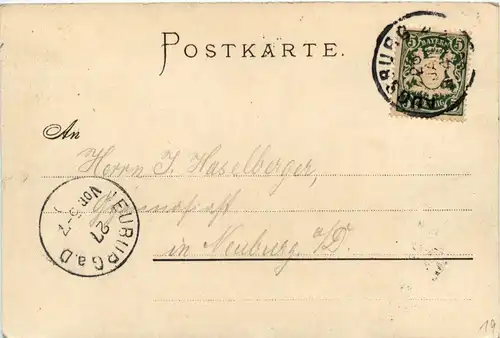 POSTKARTE.
5 BAYERN 5
AUGSBURG
An
Herrn J. Haselberger,
in Neuburg a/D.
NEUBURG a. D
27
Vor. 6-7
19